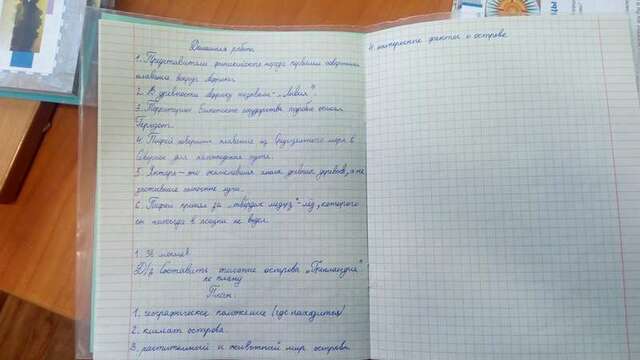 Домашняя работа
1. Представители финикийского народа первыми совершили
плавание вокруг Африки.
2. В древности Африку называли - "Ливия".
3. Территорию Египетского государства подробно описал
Геродот.
4. Пифей совершил плавание из Средиземного моря в
Северное для
5. Янтарь - это окаменевшая смола древних деревьев, а не
застывшие солнечные лучи.
6. Пифей принял за "твердых медуз" - лёд, которого
он никогда в жизни не видел.
1. 36
Д/з Составить описание острова "Гренландия"
по плану
План:
1. географическое положение (где находится)
2. климат острова.
3. растительный и животный мир острова.
4. интересные факты о острове